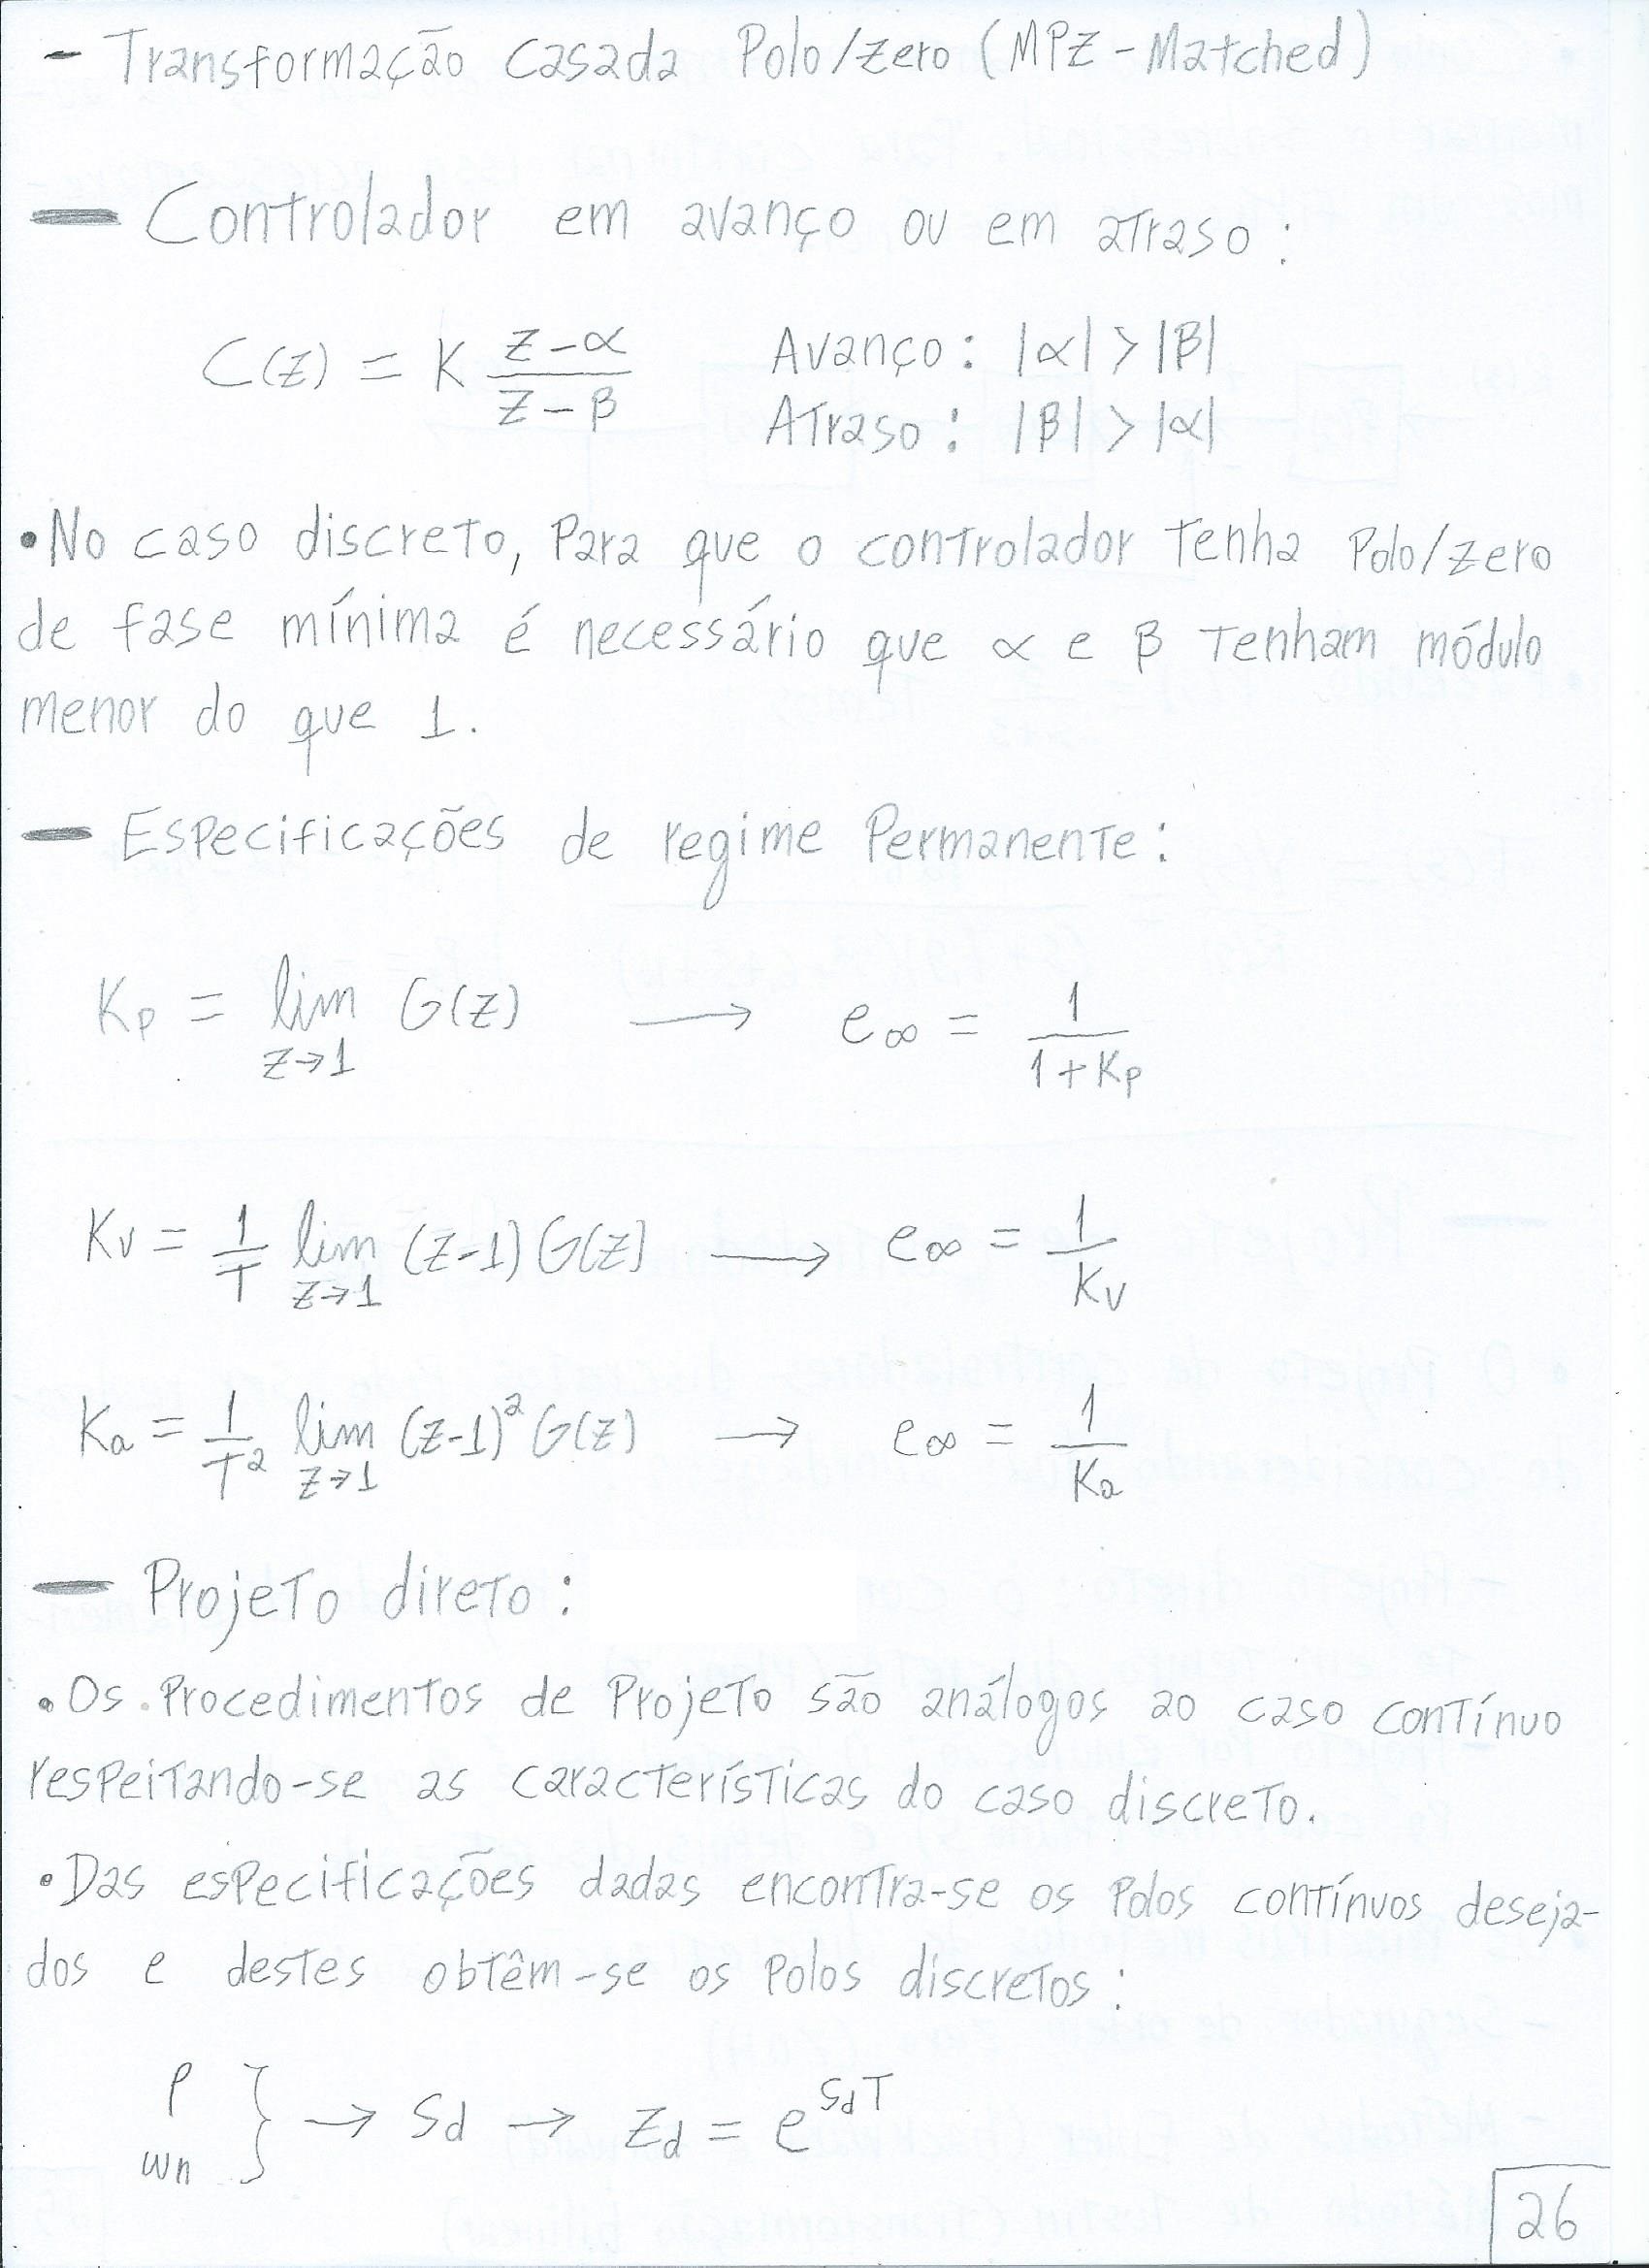 - Transformação Casada Polo/zero (MPZ - Matched)
- Controlador em avanço ou em atraso:
C(z) = K (z-α)/(z-β) Avanço: |α| > |β|
Atraso: |β| > |α|
• No caso discreto, Para que o controlador tenha Polo/zero
de fase mínima é necessário que α e β tenham módulo
menor do que 1.
- Especificações de regime Permanente:
Kp = lim z→1 G(z) → e∞ = 1/(1+Kp)
Kv = 1/T lim z→1 (z-1) G(z) → e∞ = 1/Kv
Ka = 1/T² lim z→1 (z-1)² G(z) → e∞ = 1/Ka
- Projeto direto:
• Os Procedimentos de Projeto são análogos ao caso contínuo
respeitando-se as características do caso discreto.
• Das especificações dadas encontra-se os Polos contínuos deseja-
dos e destes obtêm-se os Polos discretos:
ρ
wn } → Sd → Zd = e^(SdT)
26